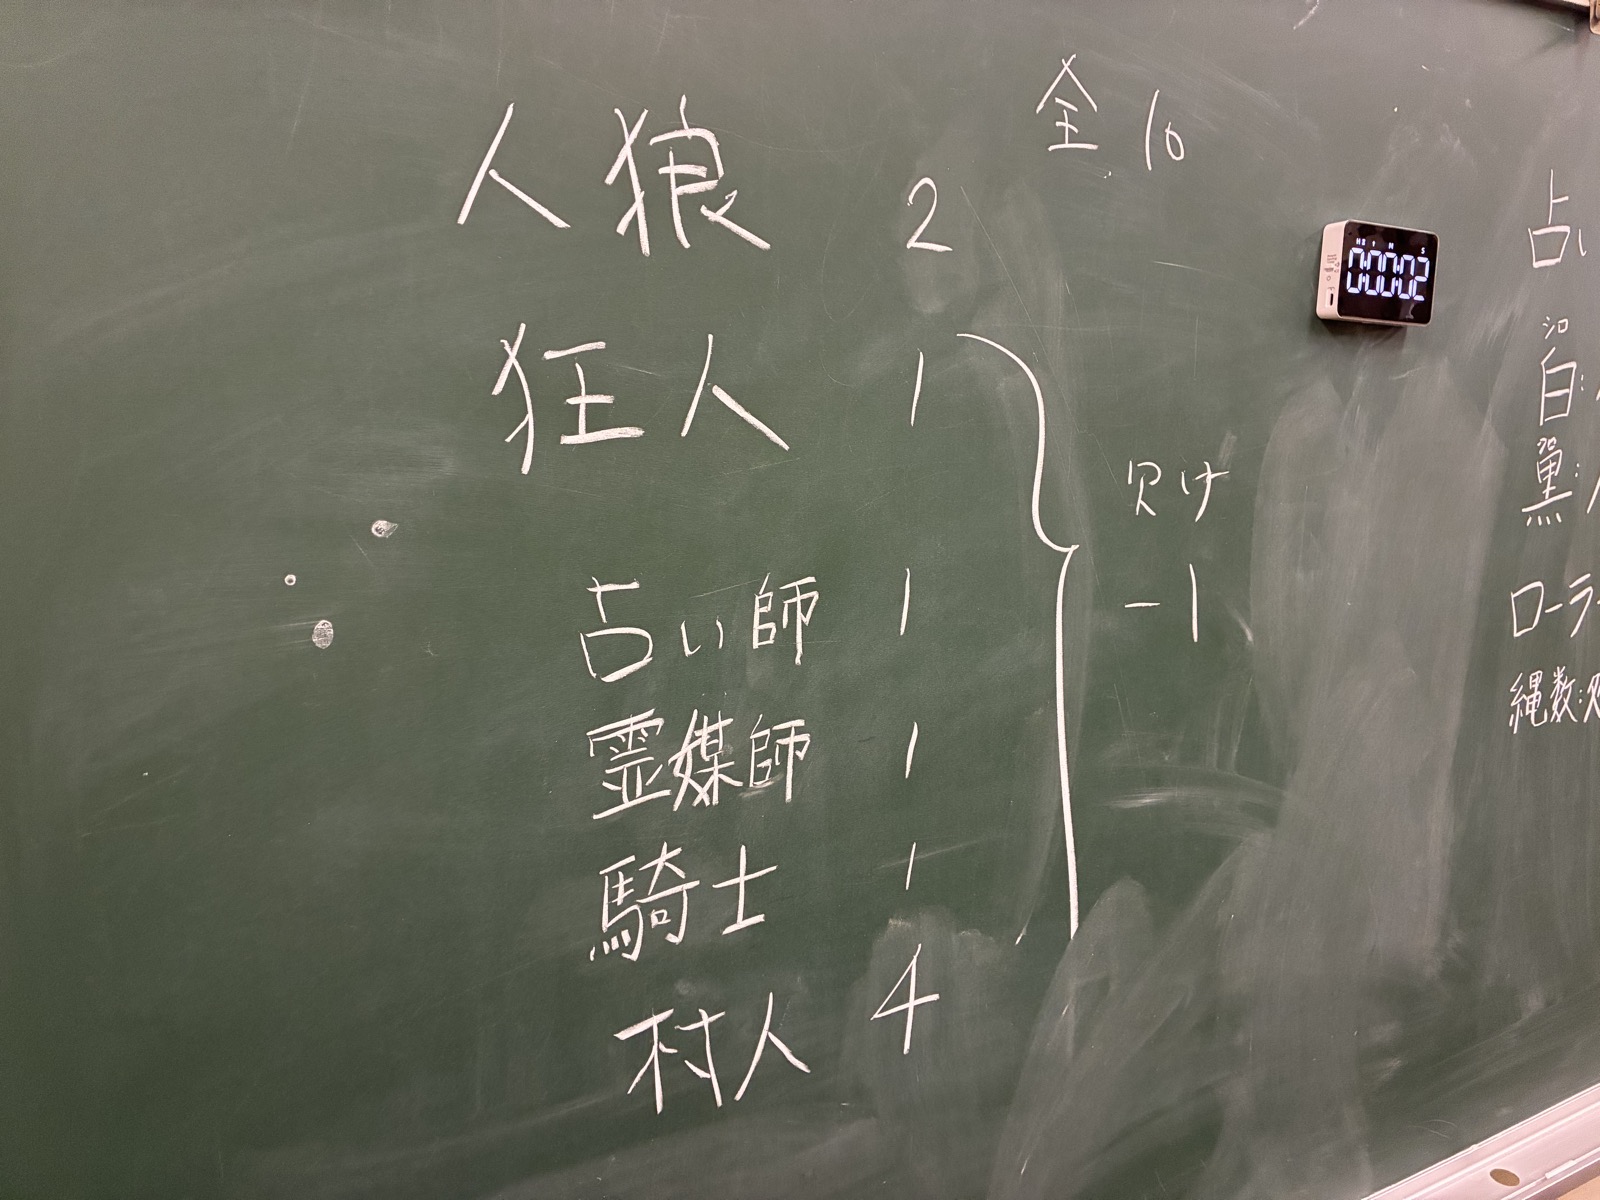 全 10
人狼 2
狂人 1
欠け
-1
占い師 1
霊媒師 1
騎士 1
村人 4
0:00:02
占い
シロ
白:
クロ
黒:
ローラー
縄数: